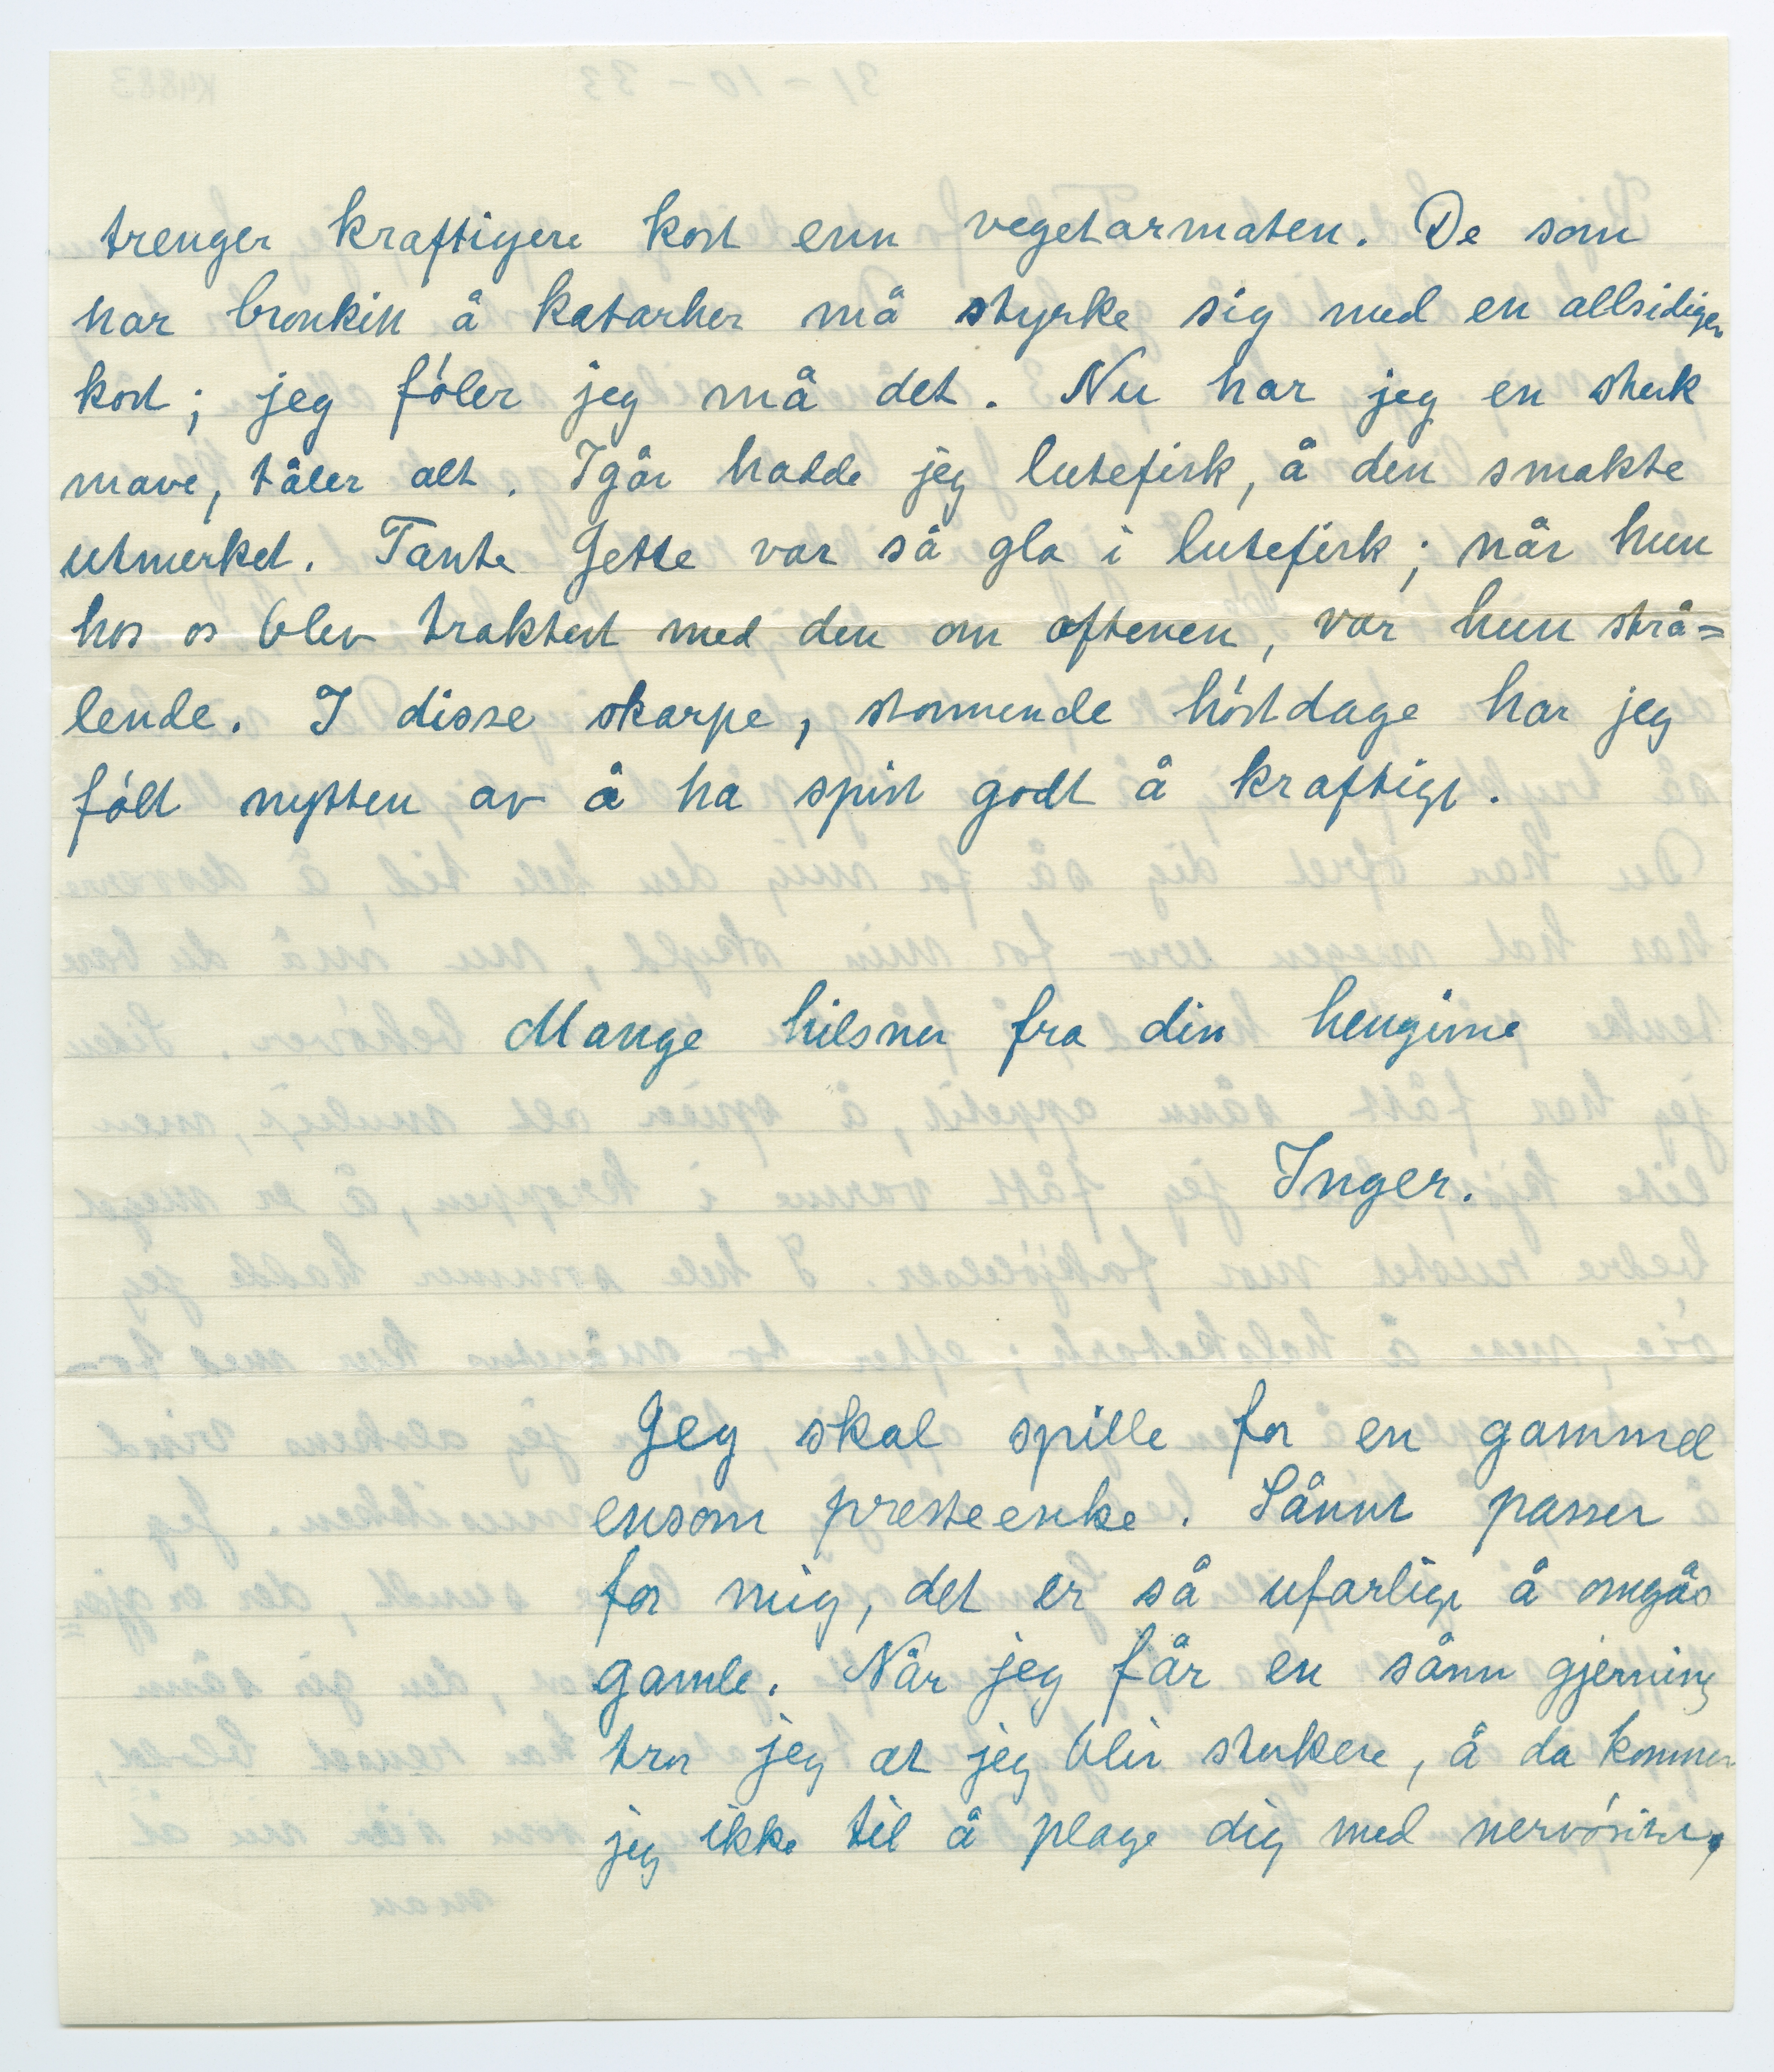 trenger kraftigere kost enn vegetarmaten. De som
har bronkit å katarher må styrke sig med en allsidigere
kost; jeg føler jeg må det. Nu har jeg en sterk
mave, tåler alt. Igår hadde jeg lutefisk, å den smakte
utmerket. Tante Jette var så gla i lutefisk; når hun
hos os blev traktert med den om aftenen, var hun strå=
lende. I disse skarpe, stormende høstdage har jeg
følt nytten av å ha spist godt å kraftigt.
Mange hilsner fra din hengivne
Inger.
Jeg skal spille for en gammel
ensom presteenke. Sånnt passer
for mig, det er så ufarligt å omgås
gamle. Når jeg får en sånn gjerning
tror jeg at jeg blir sterkere, å da kommer
jeg ikke til å plage dig med nervøsitet,